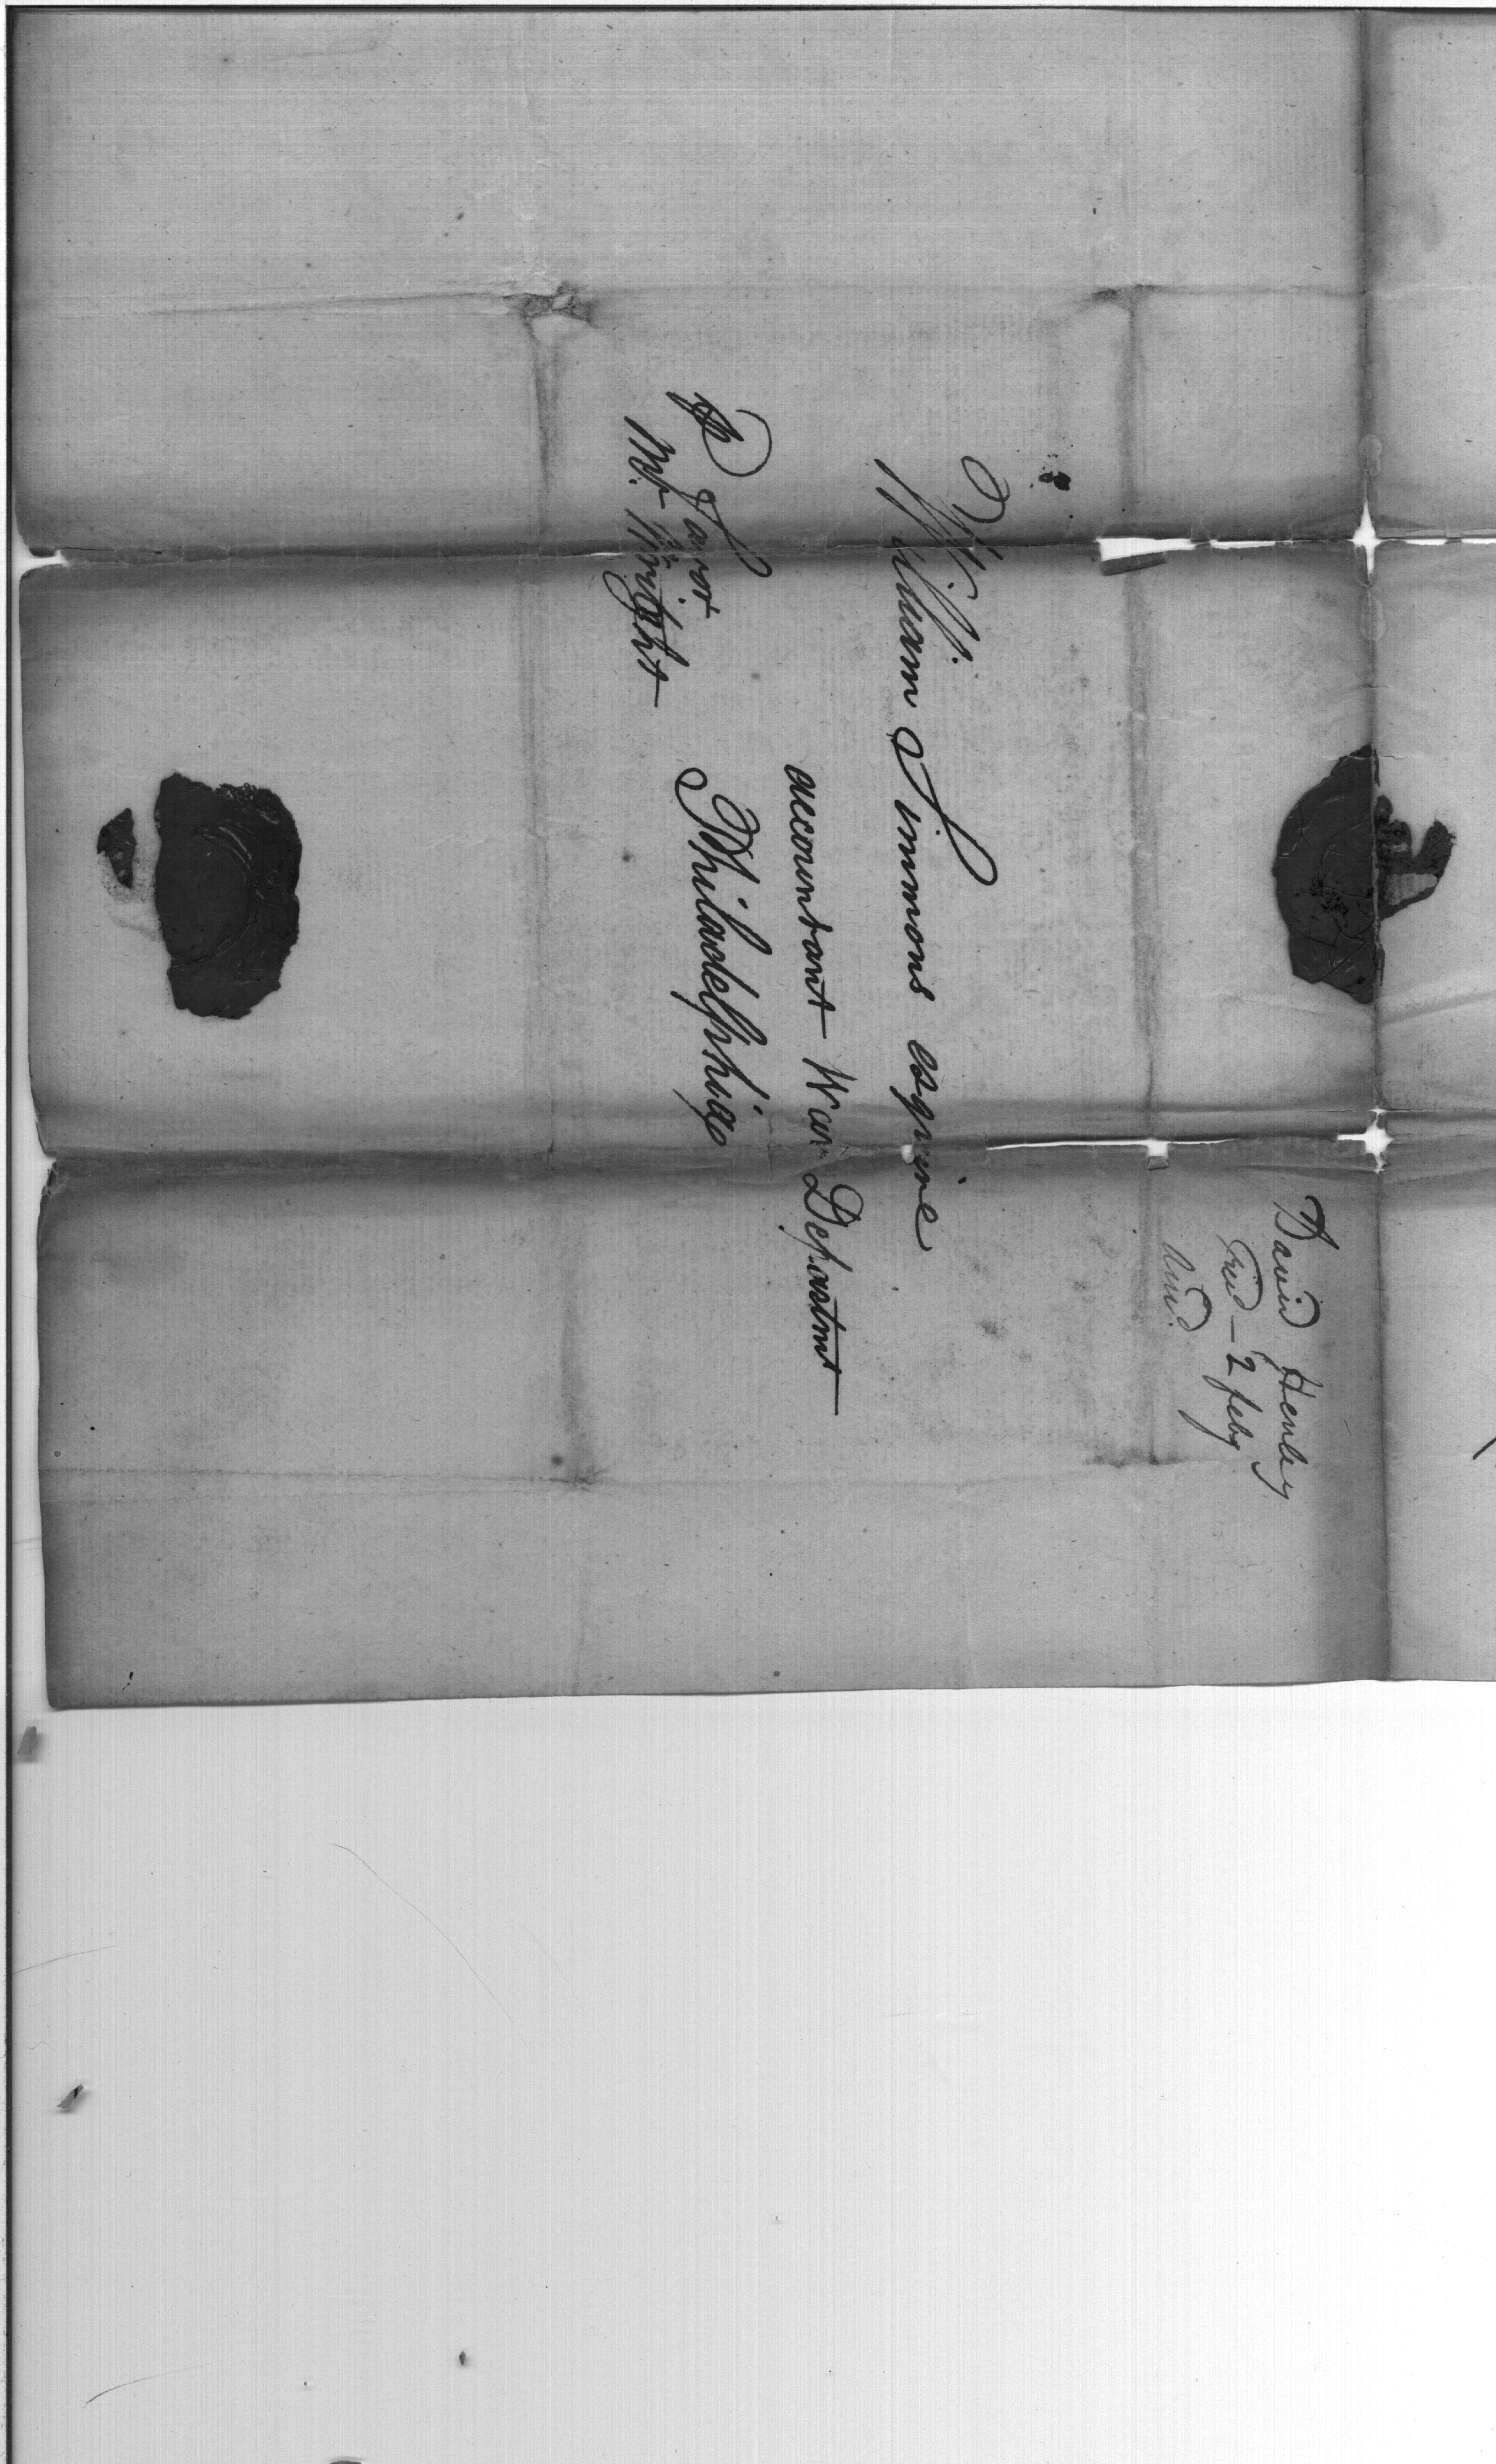 David Henley
Recd - 2 feby
William Simmons esquire
accountant War Departmt
Philadelphia
⅌ favor
Mr. Wright